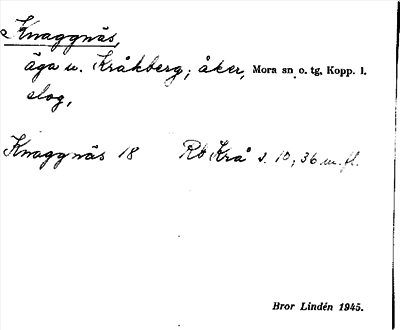 Knaggnäs,
äga u. Kråkberg; åker, Mora sn o. tg, Kopp. l.
slog,
Knaggnäs 18 Rb Krå s. 10, 36 m. fl.
Bror Lindén 1945.